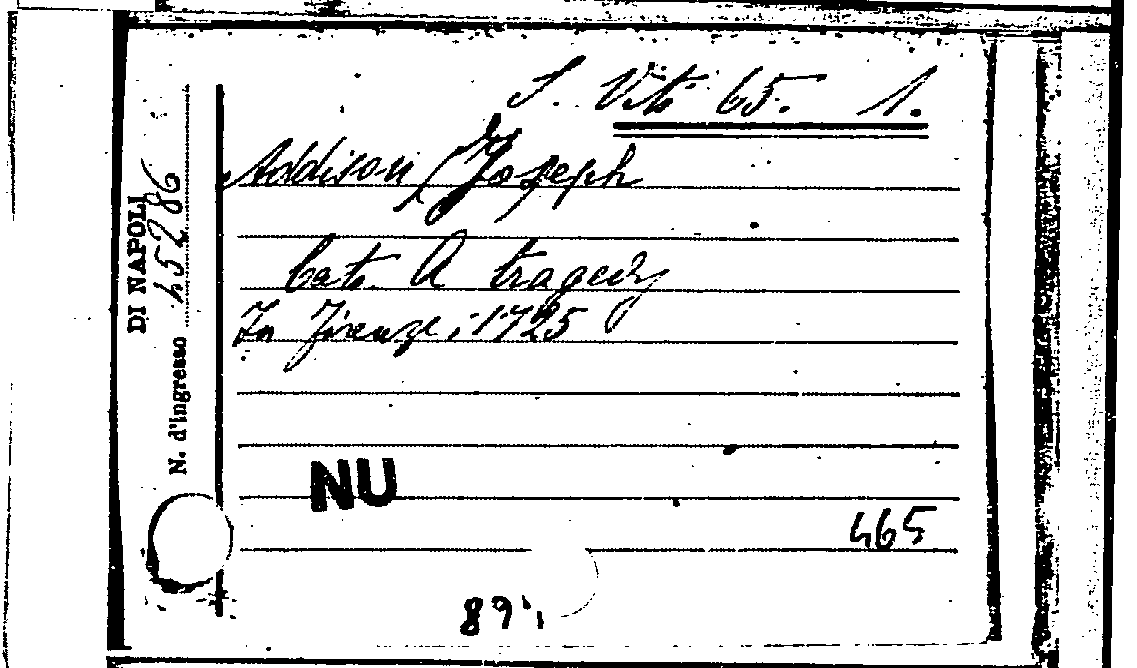 S. Vito 65. 1.
Addison, Joseph
Cato. A tragedy
In Firenze, 1725
NU
465
DI NAPOLI
N. d'ingresso 45286